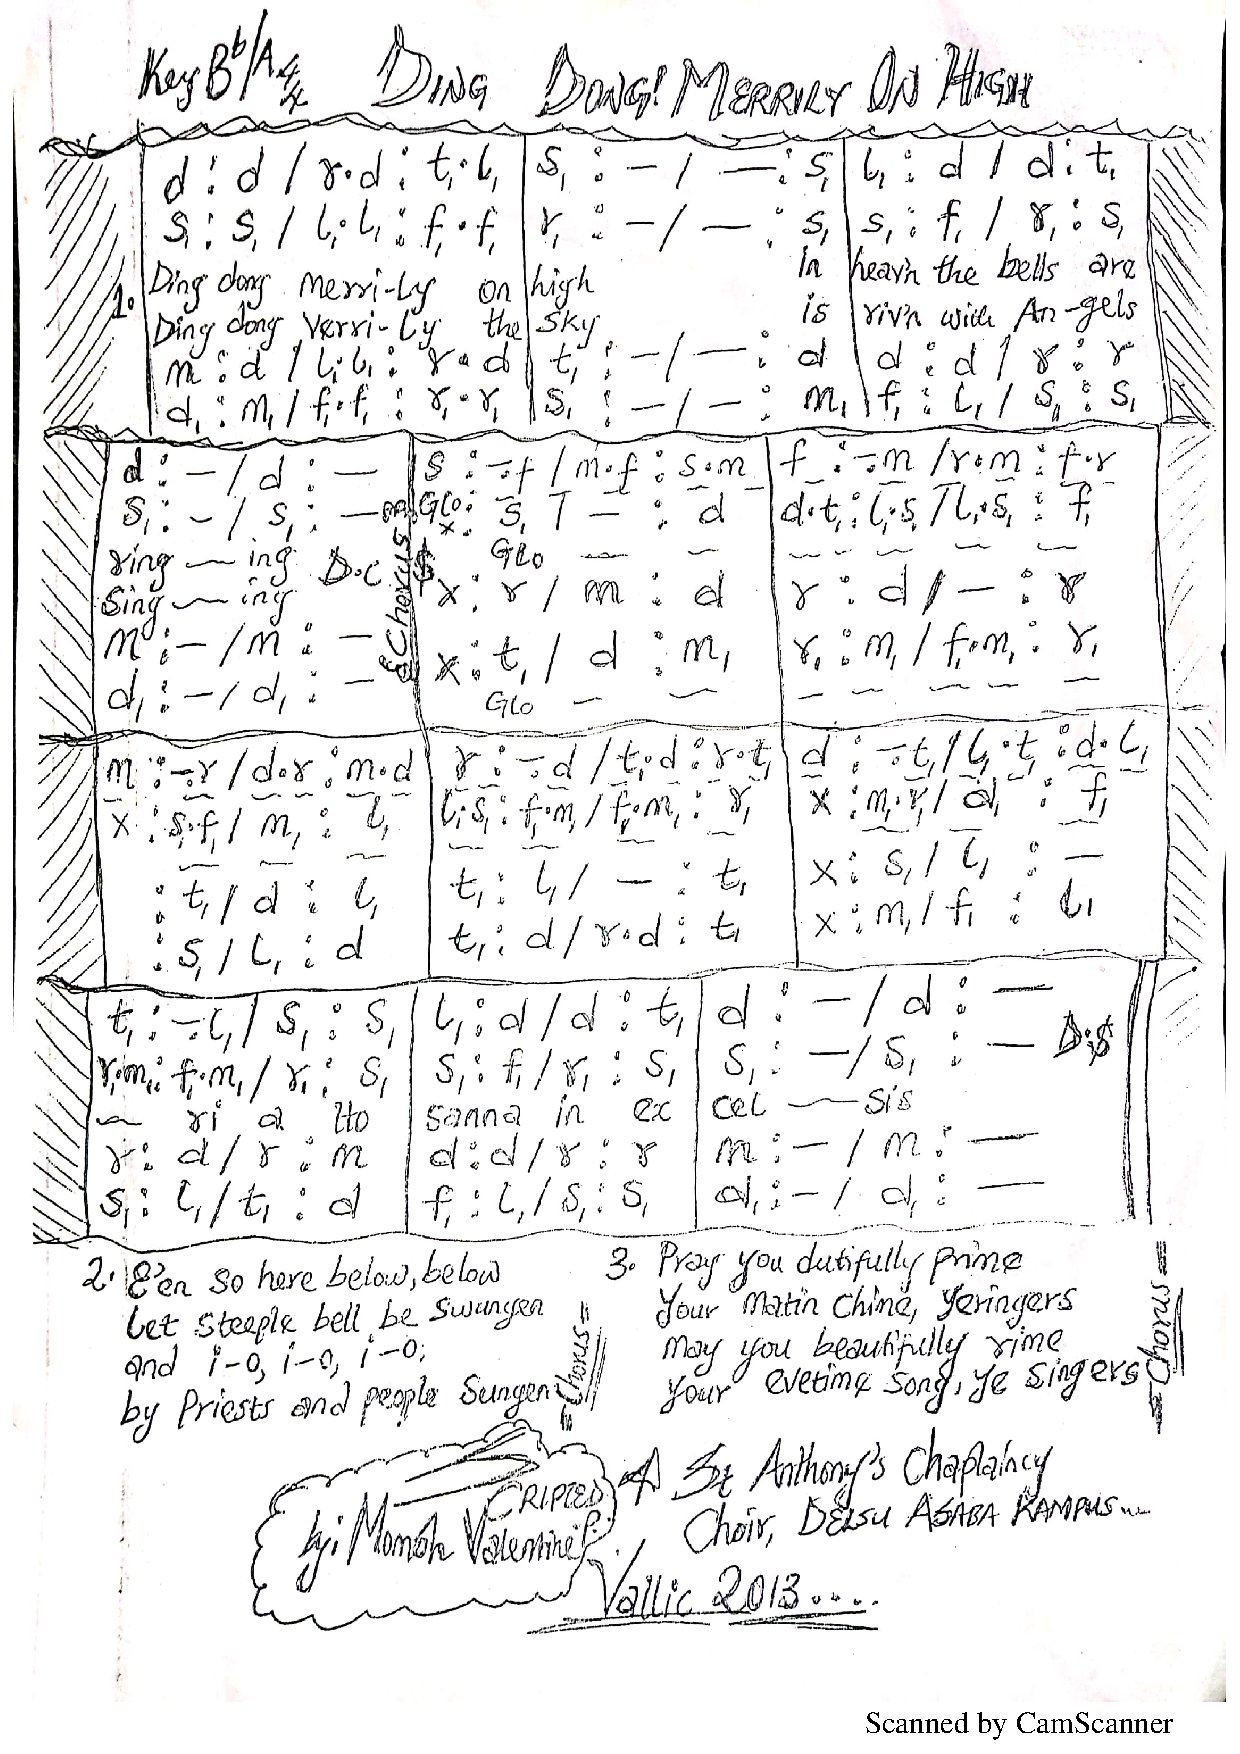 Key Bb/A 4/4 DING DONG! MERRILY ON HIGH
d : d / r.d : t₁.l₁ | s₁ : – / — : s₁ | l₁ : d / d : t₁
s₁ : s₁ / l₁.l₁ : f₁.f₁ | r₁ : – / — : s₁ | s₁ : f₁ / r₁ : s₁
1. Ding dong merri-ly on high in heav'n the bells are
Ding dong verri-ly the sky is riv'n with An-gels
m : d / l₁.l₁ : r.d | t₁ : – / — : d | d : d / r : r
d₁ : m₁ / f₁.f₁ : r₁.r₁ | s₁ : – / – : m₁ | f₁ : l₁ / s₁ : s₁
d : – / d : — | s : -.f / m.f : s.m | f : -.m / r.m : f.r
s₁ : – / s₁ : — | Glo: x : s₁ / – : d | d.t₁ : l₁.s₁ / l₁.s₁ : f₁
ring — ing D.C Glo
Sing — ing
Chorus
m : – / m : — | x : r / m : d | r : d / – : r
d₁ : – / d₁ : — | x : t₁ / d : m₁ | r₁ : m₁ / f₁.m₁ : r₁
Glo
m : -.r / d.r : m.d | r : -.d / t₁.d : r.t₁ | d : -.t₁ / l₁.t₁ : d.l₁
x : s₁.f₁ / m₁ : l₁ | l₁.s₁ : f₁.m₁ / f₁.m₁ : r₁ | x : m₁.r₁ / d₁ : f₁
: t₁ / d : l₁ | t₁ : l₁ / – : t₁ | x : s₁ / l₁ : –
: s₁ / l₁ : d | t₁ : d / r.d : t₁ | x : m₁ / f₁ : l₁
t₁ : -.l₁ / s₁ : s₁ | l₁ : d / d : t₁ | d : – / d : —
r₁.m₁ : f₁.m₁ / r₁ : s₁ | s₁ : f₁ / r₁ : s₁ | s₁ : – / s₁ : — D:$
~ ri a Ho sanna in ex cel — sis
r : d / r : m | d : d / r : r | m : – / m : —
s₁ : l₁ / t₁ : d | f₁ : l₁ / s₁ : s₁ | d₁ : – / d₁ : —
2. E'en so here below, below
Let steeple bell be swungen
and i-o, i-o, i-o;
by Priests and people Sungen
=Chorus=
3. Pray you dutifully prime
Your matin chime, yeringers
may you beautifully rime
your evetime song, ye singers
=Chorus=
CRIPTED
by: Momoh Valentine
St Anthony's Chaplaincy
Choir, DELSU ASABA KAMPUS....
Vallic 2013....
Scanned by CamScanner